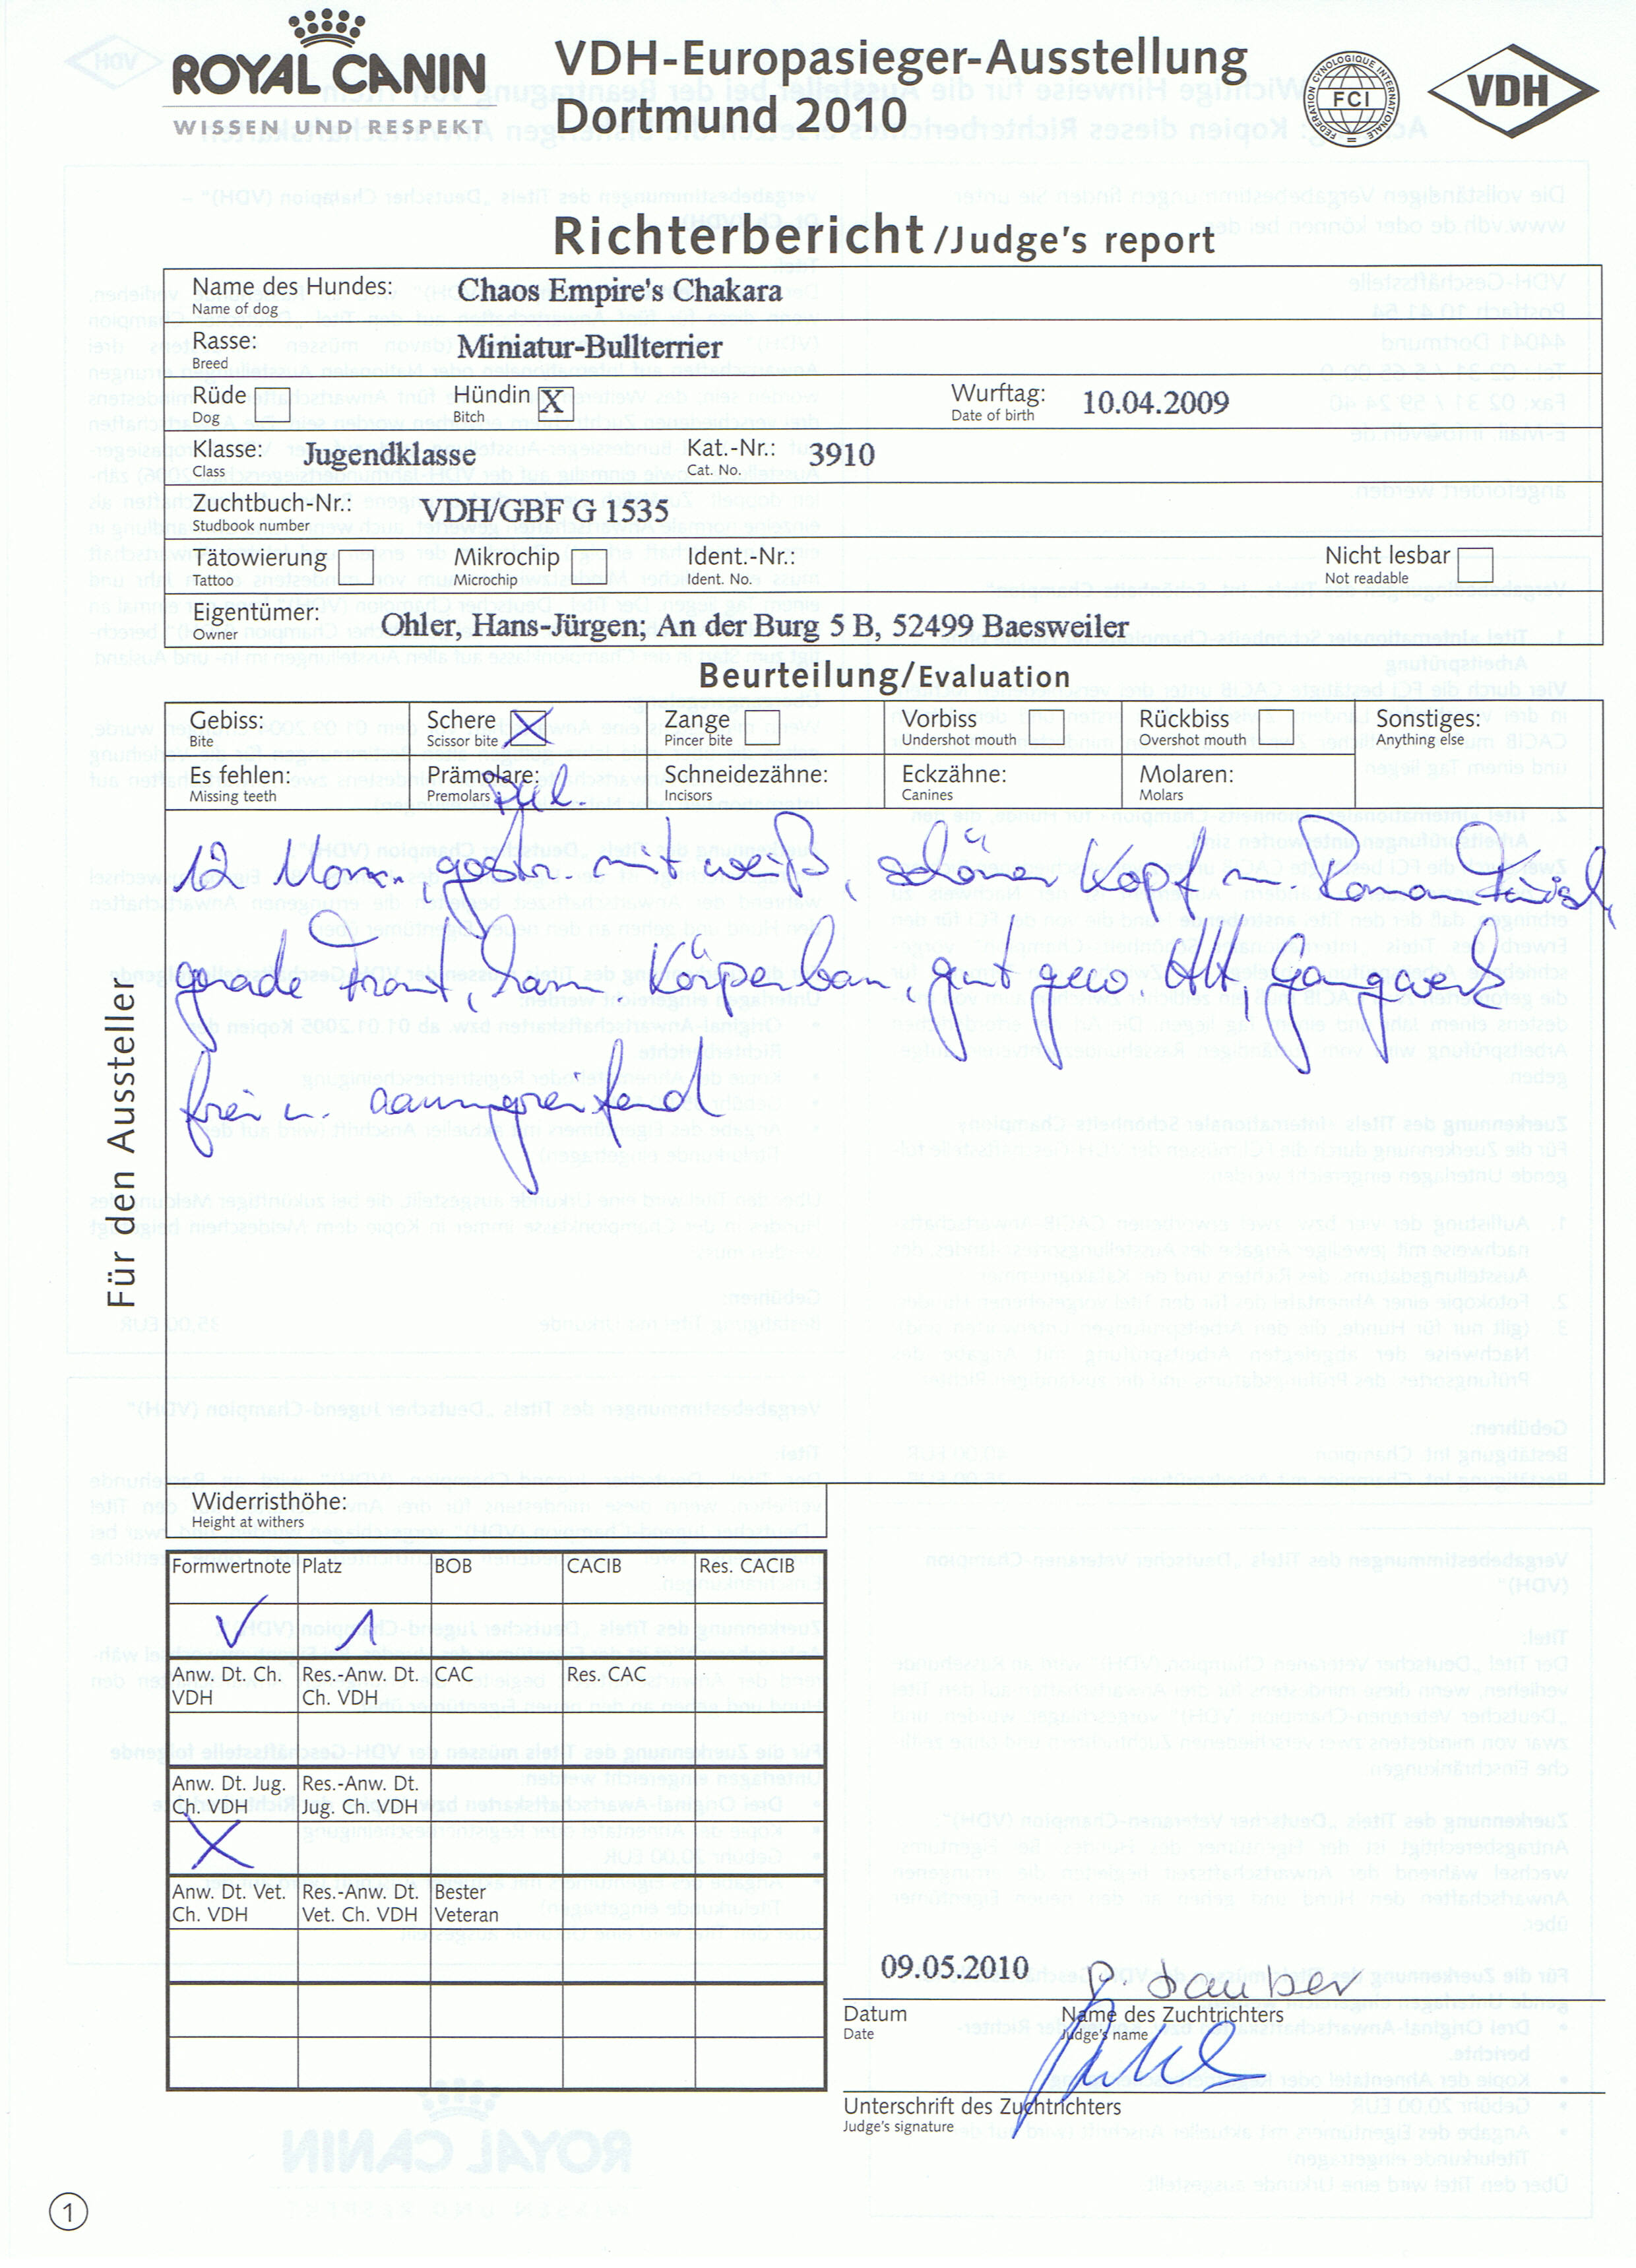 ROYAL CANIN
WISSEN UND RESPEKT
VDH-Europasieger-Ausstellung
Dortmund 2010
FEDERATION CYNOLOGIQUE INTERNATIONALE
FCI
VDH
Richterbericht/Judge's report
Name des Hundes: Chaos Empire's Chakara
Name of dog
Rasse: Miniatur-Bullterrier
Breed
Rüde Hündin X Wurftag: 10.04.2009
Dog Bitch Date of birth
Klasse: Jugendklasse Kat.-Nr.: 3910
Class Cat. No.
Zuchtbuch-Nr.: VDH/GBF G 1535
Studbook number
Tätowierung Mikrochip Ident.-Nr.: Nicht lesbar
Tattoo Microchip Ident. No. Not readable
Eigentümer: Ohler, Hans-Jürgen; An der Burg 5 B, 52499 Baesweiler
Owner
Beurteilung/Evaluation
Gebiss: Schere X Zange Vorbiss Rückbiss Sonstiges:
Bite Scissor bite Pincer bite Undershot mouth Overshot mouth Anything else
Es fehlen: Prämolare: Schneidezähne: Eckzähne: Molaren:
Missing teeth Premolars Incisors Canines Molars
12 Mon., gestr. mit weiß, schöner Kopf m.
gerade Front, harm Körperbau, gut gew. HH, Gangwerk
frei u. raumgreifend
Für den Aussteller
Widerristhöhe:
Height at withers
Formwertnote Platz BOB CACIB Res. CACIB
V 1
Anw. Dt. Ch. VDH Res.-Anw. Dt. Ch. VDH CAC Res. CAC
Anw. Dt. Jug. Ch. VDH Res.-Anw. Dt. Jug. Ch. VDH
X
Anw. Dt. Vet. Ch. VDH Res.-Anw. Dt. Vet. Ch. VDH Bester Veteran
09.05.2010
Datum Name des Zuchtrichters
Date Judge's name
Unterschrift des Zuchtrichters
Judge's signature
1